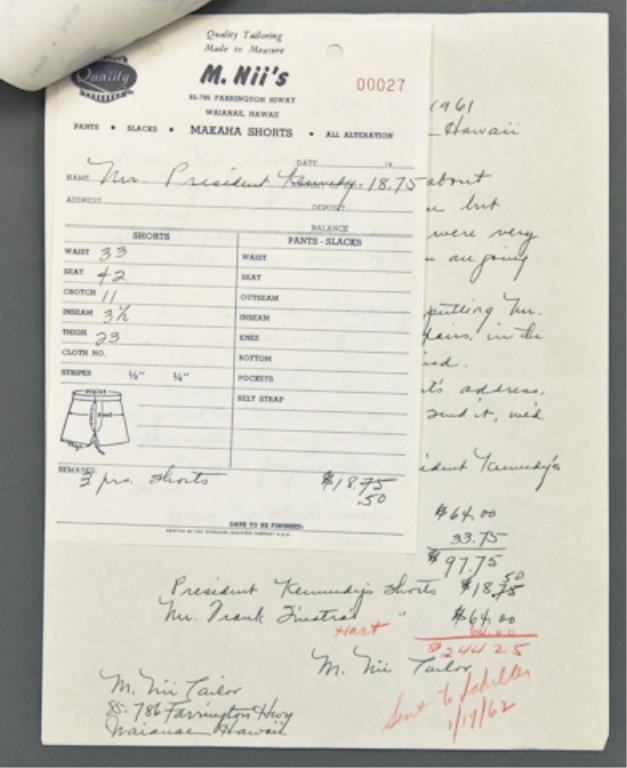 Quality Tailoring
Made to Measure
Quality
M. Nii's
00027
85-786 FARRINGTON HIWAY
WAIANAE, HAWAII
PANTS • SLACKS • MAKAHA SHORTS • ALL ALTERATION
DATE 19
NAME Mr. President Kennedy 18.75
ADDRESS
DEPOSIT
BALANCE
SHORTS
WAIST 33
SEAT 42
CROTCH 11
INSEAM 3½
THIGH 23
CLOTH NO.
STRIPES ½" ¼"
Waist
Seat
Thigh
PANTS - SLACKS
WAIST
SEAT
OUTSEAM
INSEAM
KNEE
BOTTOM
POCKETS
BELT STRAP
REMARKS:
3 prs. shorts $18.75
.50
DATE TO BE FINISHED:
PRINTED BY THE STANDARD REGISTER COMPANY U.S.A.
1961
Hawaii
about
but
were very
are going
putting Mr.
in the
t's address.
send it, we'd
ident Kennedy's
$64.00
33.75
$97.75
President Kennedy's shorts $18.75
50
Mr. Frank Sinatra's " $64.00
Hart
64.00
$244.25
M. Nii Tailor
Sent to Schiller
1/17/62
M. Nii Tailor
85-786 Farrington Hwy
Waianae Hawaii